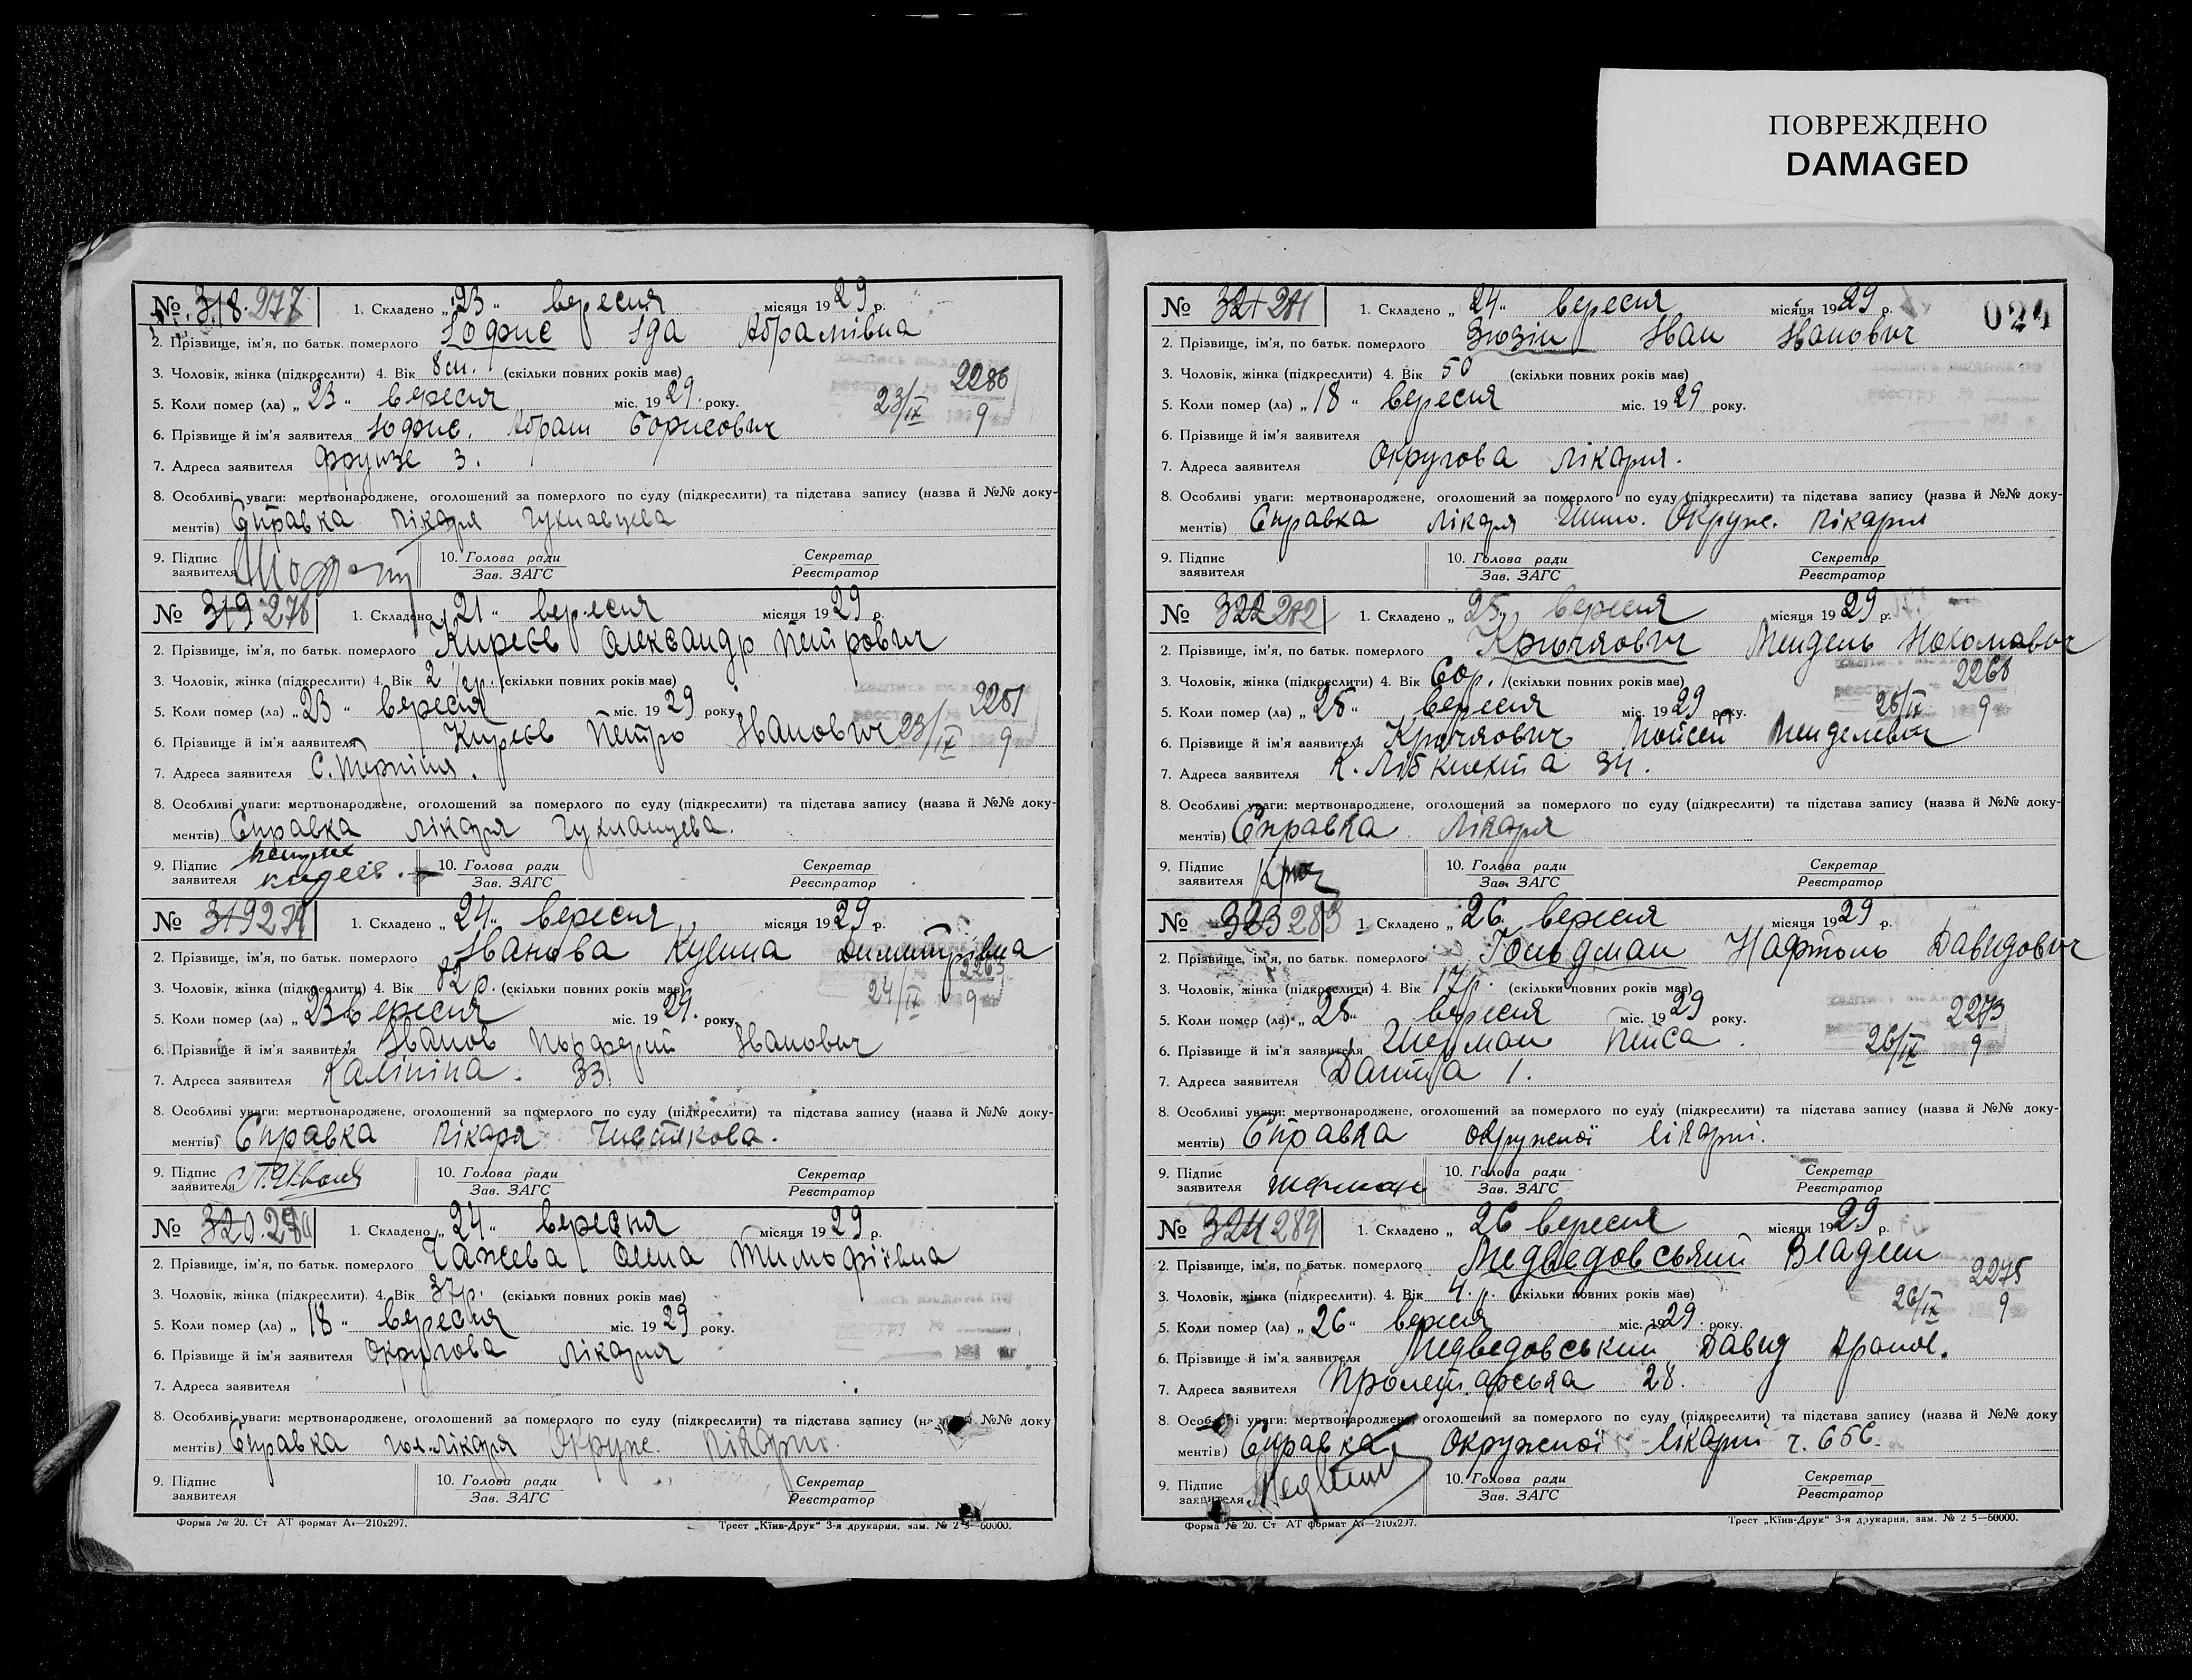 ПОВРЕЖДЕНО
DAMAGED
№ 318. 277
1. Складено „ 23 “ вересня місяця 1929 р.
2. Прізвище, ім'я, по батьк. померлого Іофис Іда Абрамівна
3. Чоловік, жінка (підкреслити) 4. Вік 8 (скільки повних років має)
2286
5. Коли помер (ла) „ 23 “ вересня міс. 1929. року.
23/IX 9
6. Прізвище й ім'я заявителя Іофис. Абрам Борисович
7. Адреса заявителя Фрунзе 3.
8. Особливі уваги: мертвонароджене, оголошений за померлого по суду (підкреслити) та підстава запису (назва й №№ доку-
ментів) Справка лікаря
9. Підпис заявителя
10. Голова ради Зав. ЗАГС
Секретар Реєстратор
№ 319 278
1. Складено „ 21 “ вересня місяця 1929 р.
2. Прізвище, ім'я, по батьк. померлого Киреєв Олександр Петрович
3. Чоловік, жінка (підкреслити) 4. Вік 2 (скільки повних років має)
5. Коли помер (ла) „ 23 “ вересня міс. 1929 року.
6. Прізвище й ім'я заявителя Киреєв Петро Іванович 23/IX 9
7. Адреса заявителя С.
8. Особливі уваги: мертвонароджене, оголошений за померлого по суду (підкреслити) та підстава запису (назва й №№ доку-
ментів) Справка лікаря
9. Підпис заявителя
10. Голова ради Зав. ЗАГС
Секретар Реєстратор
№ 319 279
1. Складено „ 24 “ вересня місяця 1929 р.
2. Прізвище, ім'я, по батьк. померлого Іванова Димитрівна
3. Чоловік, жінка (підкреслити) 4. Вік 82 р. (скільки повних років має)
24/IX 9
5. Коли помер (ла) „ 23 вересня міс. 1929. року.
6. Прізвище й ім'я заявителя Іванов Іванович
7. Адреса заявителя Калініна. 33
8. Особливі уваги: мертвонароджене, оголошений за померлого по суду (підкреслити) та підстава запису (назва й №№ доку-
ментів) Справка лікаря Чистякова.
9. Підпис заявителя
10. Голова ради Зав. ЗАГС
Секретар Реєстратор
№ 320. 280
1. Складено „ 24 “ вересня місяця 1929 р.
2. Прізвище, ім'я, по батьк. померлого Тимофіївна
3. Чоловік, жінка (підкреслити). 4. Вік 37 р. (скільки повних років має)
5. Коли помер (ла) „ 18 “ вересня міс. 1929 року.
6. Прізвище й ім'я заявителя Округова лікарня
7. Адреса заявителя
8. Особливі уваги: мертвонароджене, оголошений за померлого по суду (підкреслити) та підстава запису №№ доку
ментів) Справка гол. лікаря Окруж. лікарні.
9. Підпис заявителя
10. Голова ради Зав. ЗАГС
Секретар Реєстратор
Форма № 20. Ст АТ формат А4—210х297.
Трест „Київ-Друк“ 3-я друкарня, зам. № 2 5—60000.
024
№ 321 281
1. Складено „ 24 “ вересня місяця 1929 р.
2. Прізвище, ім'я, по батьк. померлого Зюзін Іван Іванович
3. Чоловік, жінка (підкреслити) 4. Вік 50 (скільки повних років має)
5. Коли помер (ла) „ 18 “ вересня міс. 1929 року.
6. Прізвище й ім'я заявителя
7. Адреса заявителя Округова лікарня.
8. Особливі уваги: мертвонароджене, оголошений за померлого по суду (підкреслити) та підстава запису (назва й №№ доку-
ментів) Справка лікаря Окруж. лікарні
9. Підпис заявителя
10. Голова ради Зав. ЗАГС
Секретар Реєстратор
№ 322 282
1. Складено „ 25 “ вересня місяця 1929 р.
2. Прізвище, ім'я, по батьк. померлого Мендель
3. Чоловік, жінка (підкреслити) 4. Вік 60 р. (скільки повних років має)
2268
5. Коли помер (ла) „ 25 “ вересня міс. 1929 року.
9
6. Прізвище й ім'я заявителя Мойсей Менделевич
7. Адреса заявителя К. Лібкнехта 34.
8. Особливі уваги: мертвонароджене, оголошений за померлого по суду (підкреслити) та підстава запису (назва й №№ доку-
ментів) Справка лікаря
9. Підпис заявителя
10. Голова ради Зав. ЗАГС
Секретар Реєстратор
№ 323 283
1. Складено „ 26 вересня місяця 1929 р.
2. Прізвище, ім'я, по батьк. померлого Гольдман Нафтоль Давидович
3. Чоловік, жінка (підкреслити) 4. Вік 17 р. (скільки повних років має)
2273
5. Коли помер (ла) „ 25 “ вересня міс. 1929 року.
26/IX 9
6. Прізвище й ім'я заявителя Шерман Пейса
7. Адреса заявителя 1.
8. Особливі уваги: мертвонароджене, оголошений за померлого по суду (підкреслити) та підстава запису (назва й №№ доку-
ментів) Справка окружної лікарні.
9. Підпис заявителя Шерман
10. Голова ради Зав. ЗАГС
Секретар Реєстратор
№ 324 284
1. Складено „ 26 вересня місяця 1929 р.
2. Прізвище, ім'я, по батьк. померлого Медведовський
3. Чоловік, жінка (підкреслити). 4. Вік 4 (скільки повних років має)
2275
5. Коли помер (ла) „ 26 “ вересня міс. 1929. року.
26/IX 9
6. Прізвище й ім'я заявителя Медведовський Давид
7. Адреса заявителя Пролетарська 28.
8. Особливі уваги: мертвонароджене, оголошений за померлого по суду (підкреслити) та підстава запису (назва й №№ доку
ментів) Справка окружної лікарні ч. 656.
9. Підпис заявителя
10. Голова ради Зав. ЗАГС
Секретар Реєстратор
Форма № 20. Ст АТ формат А4—210х297.
Трест „Київ-Друк“ 3-я друкарня, зам. № 2 5—60000.